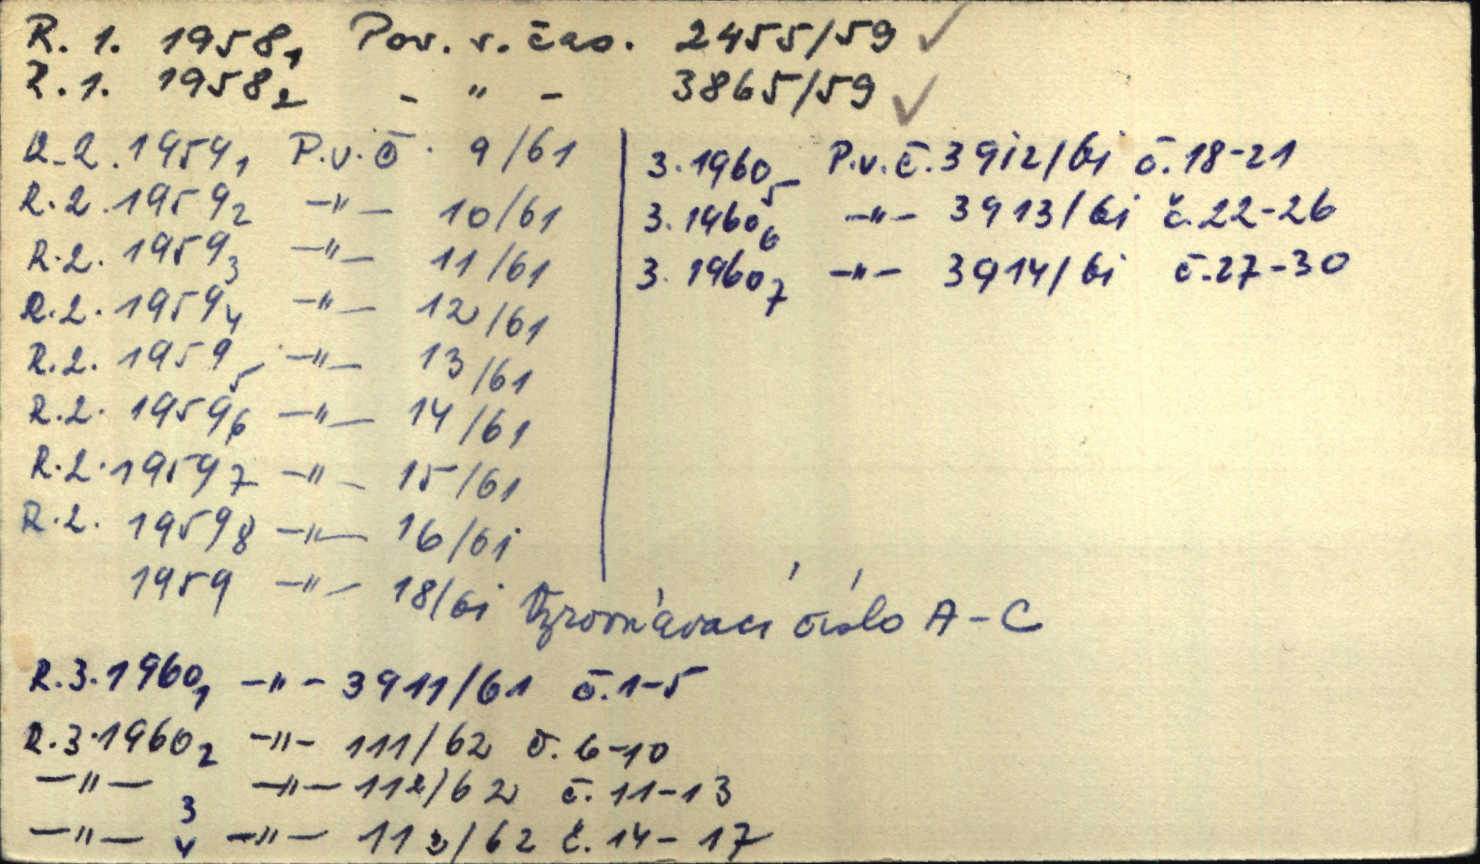 R. 1. 1958₁ Pov. v. čas. 2455/59 ✓
R. 1. 1958₂ - " - 3865/59 ✓
R.2. 1959₁ P.v.č. 9/61
R.2. 1959₂ -"- 10/61
R.2. 1959₃ -"- 11/61
R.2. 1959₄ -"- 12/61
R.2. 1959₅ -"- 13/61
R.2. 1959₆ -"- 14/61
R.2. 1959₇ -"- 15/61
R.2. 1959₈ -"- 16/61
1959 -"- 18/61 Vyrovnávací číslo A-C
3. 1960₅ P.v.č. 3912/61 č. 18-21
3. 1960₆ -"- 3913/61 č. 22-26
3. 1960₇ -"- 3914/61 č. 27-30
R.3. 1960₁ -"- 3911/61 č. 1-5
R.3. 1960₂ -"- 111/62 č. 6-10
-"- ₃ -"- 112/62 č. 11-13
-"- ₄ -"- /62 č. 14-17